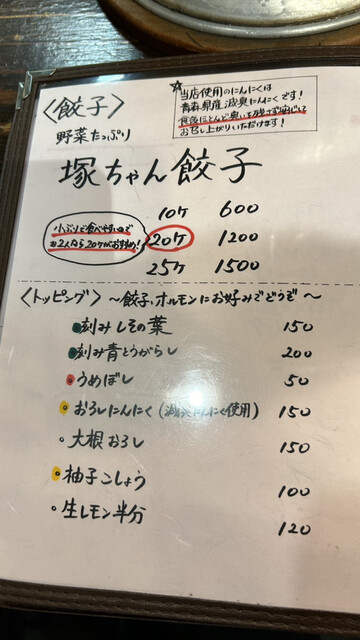 ☆当店使用のにんにくは
青森県産減臭にんにくです!
食後ほとんど臭いを残さず安心して
お召し上がりいただけます!
〈餃子〉
野菜たっぷり
塚ちゃん餃子
10ケ 600
小ぶりで食べやすいので
お2人なら20ケがおすすめ!
20ケ 1200
25ケ 1500
〈トッピング〉 〜餃子、ホルモンにお好みでどうぞ〜
刻みしその葉 150
刻み青とうがらし 200
うめぼし 50
おろしにんにく (減臭にんにく使用) 150
大根おろし 150
柚子こしょう 100
生レモン半分 120